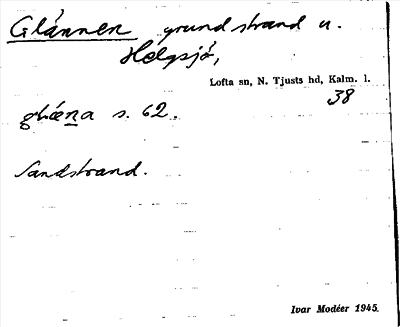 Glännen grundstrand u.
Helgsjö,
Lofta sn, N. Tjusts hd, Kalm. l.
38
glæna s. 62.
Sandstrand.
Ivar Modéer 1945.